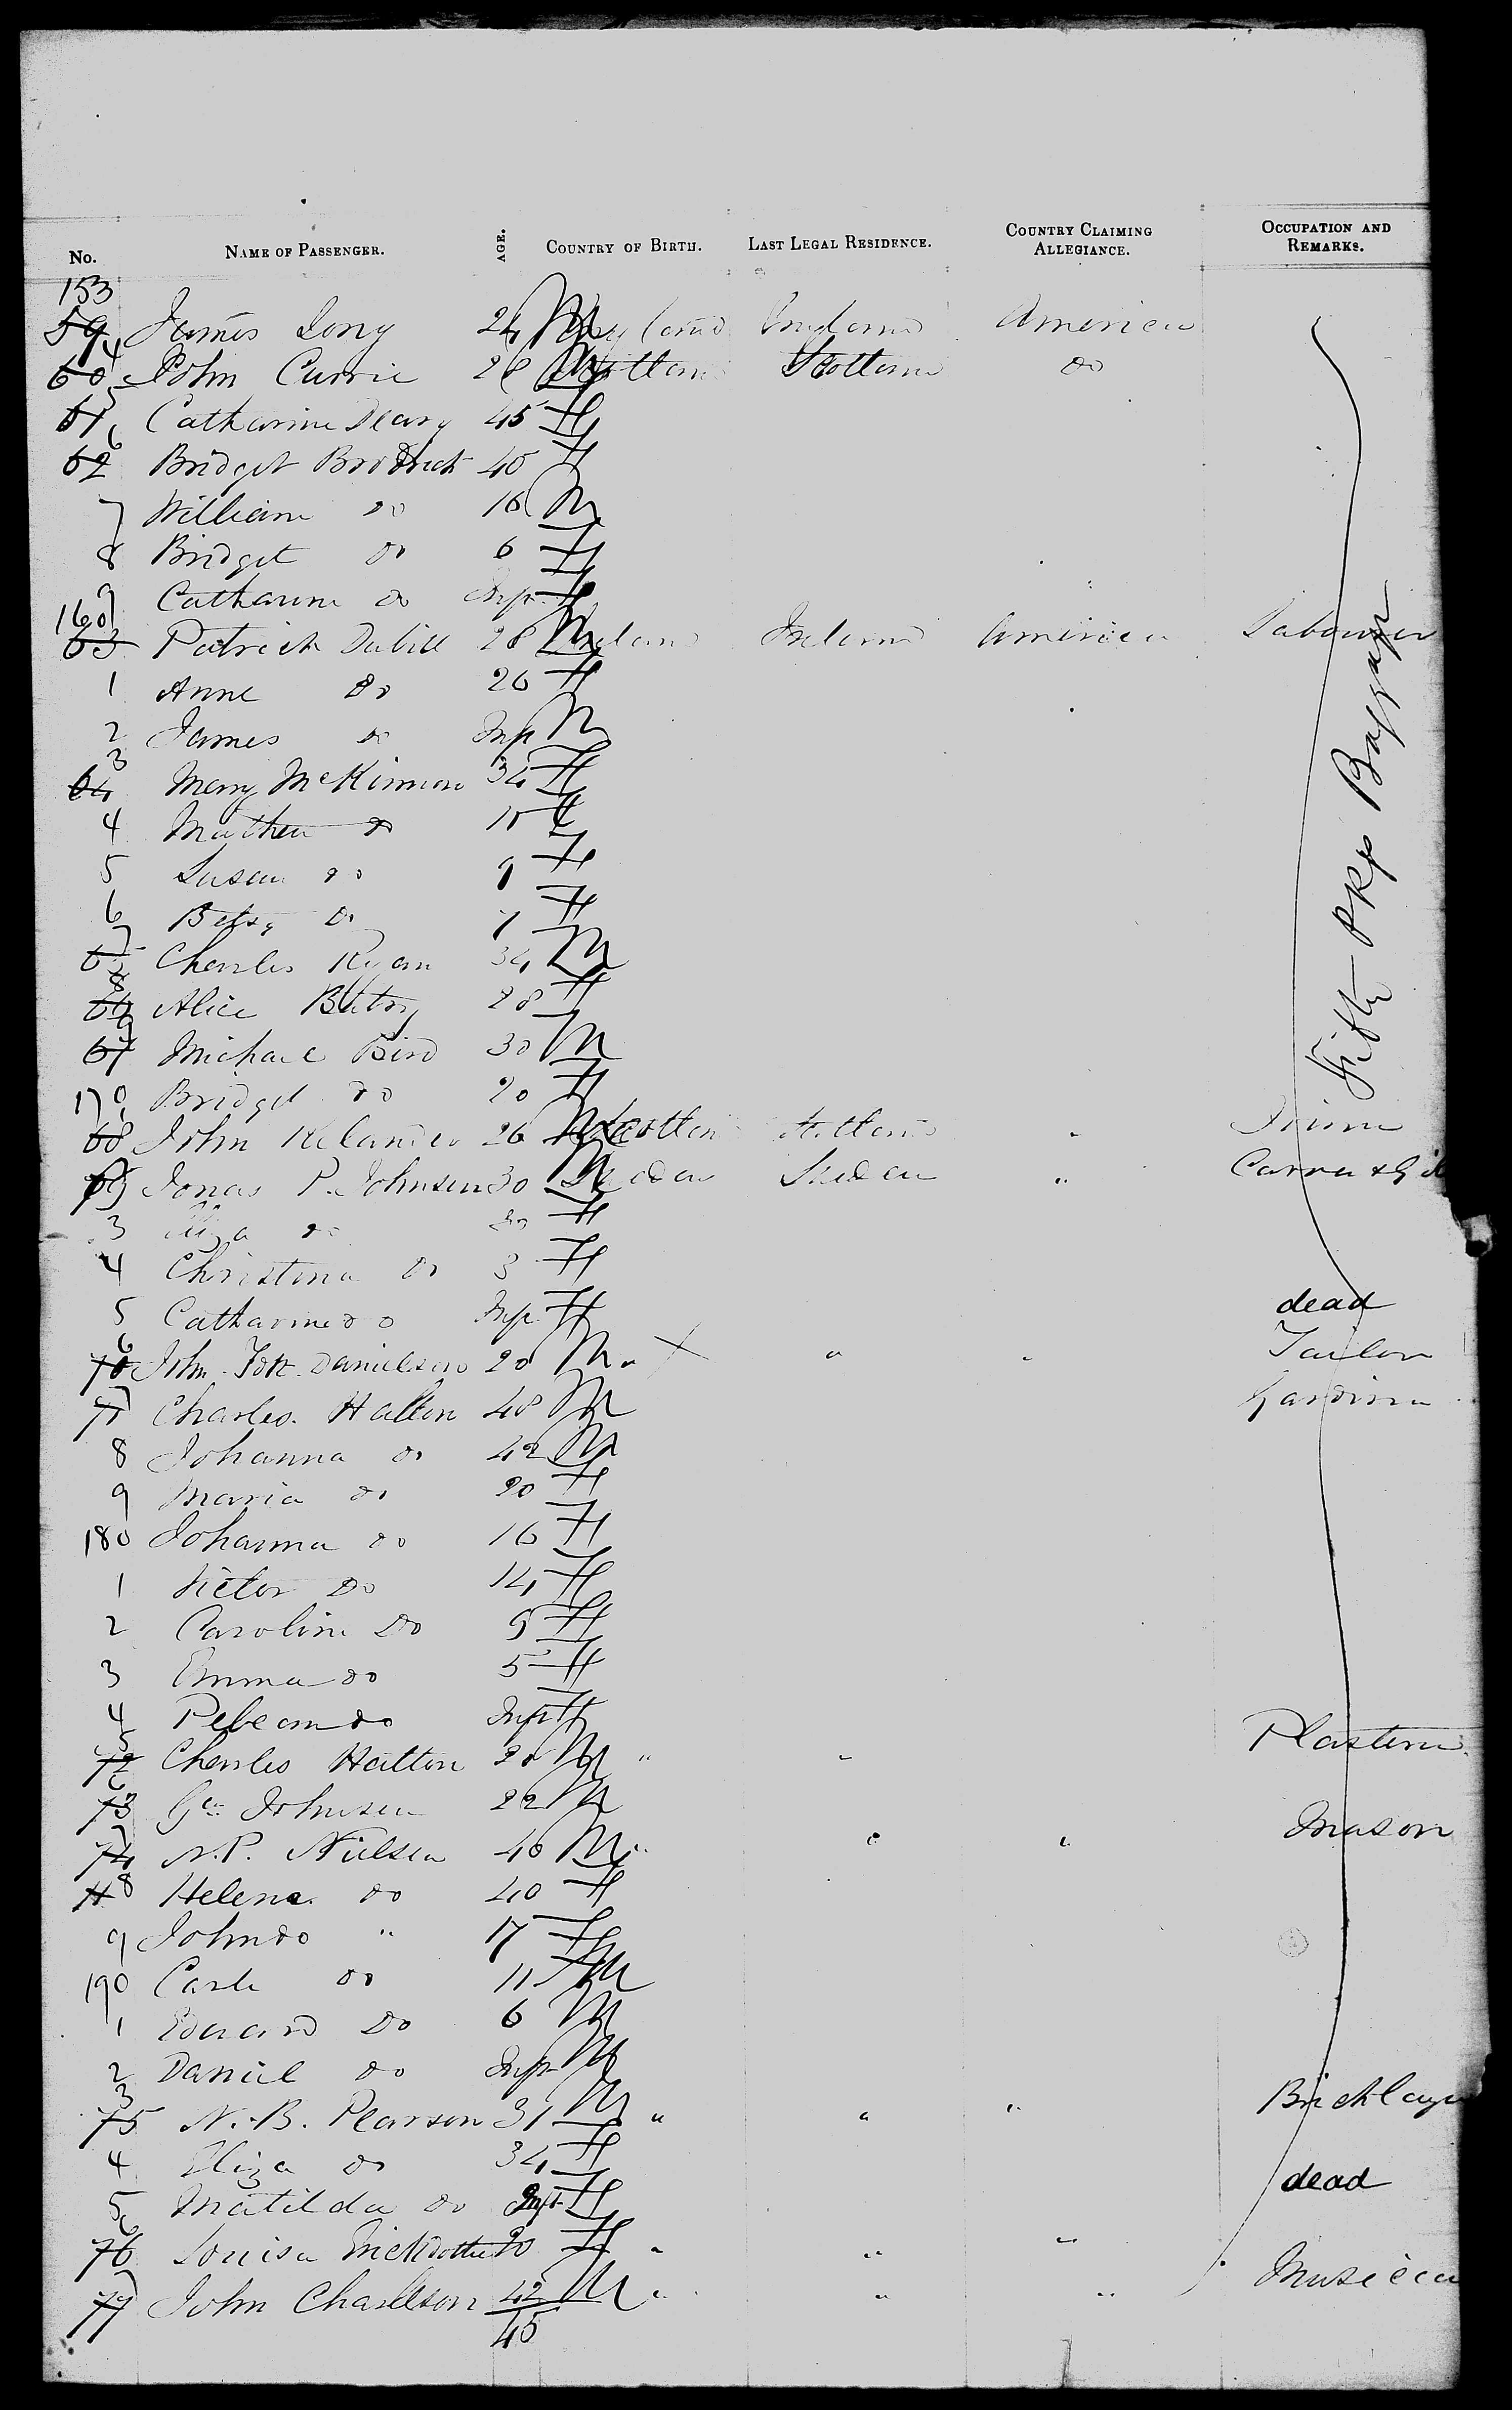 No. NAME OF PASSENGER. AGE. COUNTRY OF BIRTH. LAST LEGAL RESIDENCE. COUNTRY CLAIMING ALLEGIANCE. OCCUPATION AND REMARKS.
153
59 James Long 24 M England America
4
60 John Currie 26 M Scotland do
5
61 Catharine Deary 45 F
6
62 Bridget Brodrick 40 F
7 William do 16 M
8 Bridget do 6 F
9 Catharine do Inft F
160
63 Patrick Dubill 28 M Ireland Ireland America Labourer
1 Anne do 26 F
2 James do Inft M
3
64 Mary McKinnon 34 F
4 Mathew do
5 Susan do 9 F
6 Betsy do 7 F
7
65 Charles Ryan 34 M
8
66 Alice 28 F
9
67 Michael Bird 30 M
170 Bridget do 20 F
1
68 John 26 M Scotland Scotland "
69 Jonas P. Johnson 30 M Sweden Sweden "
3 Eliza do 30 F
4 Christina do 3 F
5 Catharine do Inft F dead
6
70 John Danielson 20 M " X " " Tailor
7
71 Charles Halton 48 M
8 Johanna do 42 M
9 Maria do 20 F
180 Johanna do 16 F
1 Victor do 14 F
2 Caroline do 9 F
3 Emma do 5 F
4 do Inft F
5
72 Charles Halton 20 M " "
6
73 Geo Johnson 22 M
7
74 N.P. Nielsen 40 M " " " Mason
8 Helena do 40 F
9 John do " 17 F
190 Carl do 11 M
1 Edward do 6 M
2 Daniel do Inft M
3
75 N. B. Pearson 31 M " " " Bricklayer
4 Eliza do 34 F
5 Matilda do Inft F dead
6
76 Louisa 20 F " " "
7
77 John Charlson 42 M " " "
45
Fifty Pkgs Baggage